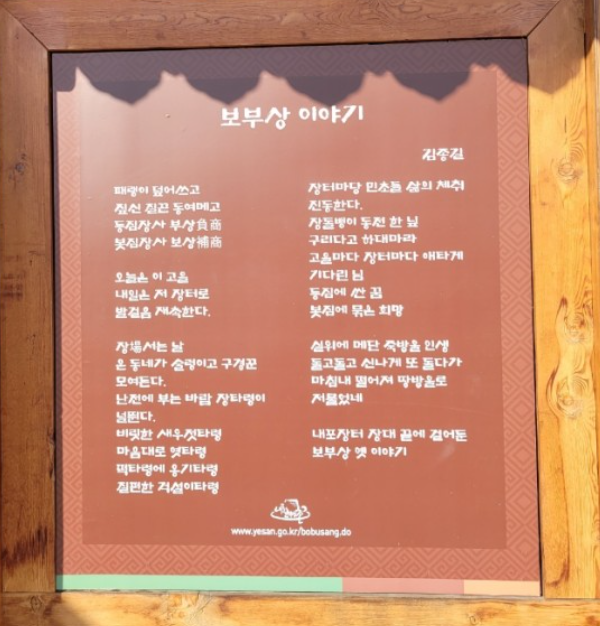 보부상 이야기
김종길
패랭이 덮어쓰고
짚신 질끈 동여메고
등짐장사 부상負商
봇짐장사 보상補商
오늘은 이 고을
내일은 저 장터로
발걸음 재속한다.
장場서는 날
온 동네가 술렁이고 구경꾼
모여든다.
난전에 부는 바람 장타령이
넘쳔다.
비릿한 새우젓타령
마음대로 엿타령
떡타령에 옹기타령
질펀한 각설이타령
장터마당 민초들 삶의 체취
진동한다.
장돌뱅이 동전 한 닢
구리다고 하대마라
고을마다 장터마다 애타게
기다린 님
등짐에 싼 꿈
봇짐에 묶은 희망
실위에 메단 죽방울 인생
돌고돌고 신나게 또 돌다가
마침내 떨어져 땅방울로
저물었네
내포장터 장대 끝에 걸어둔
보부상 옛 이야기
www.yesan.go.kr/bobusang.do